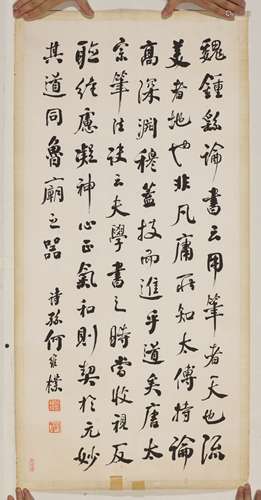 魏鍾繇論書云用筆者天也流
美者地也非凡庸所知太傅特論
高深淵穆蓋技而進乎道矣唐太
宗筆法訣云夫學書之時當收視反
聽絕慮凝神心正氣和則契於元妙
其道同魯廟之器 詩孫何維樸